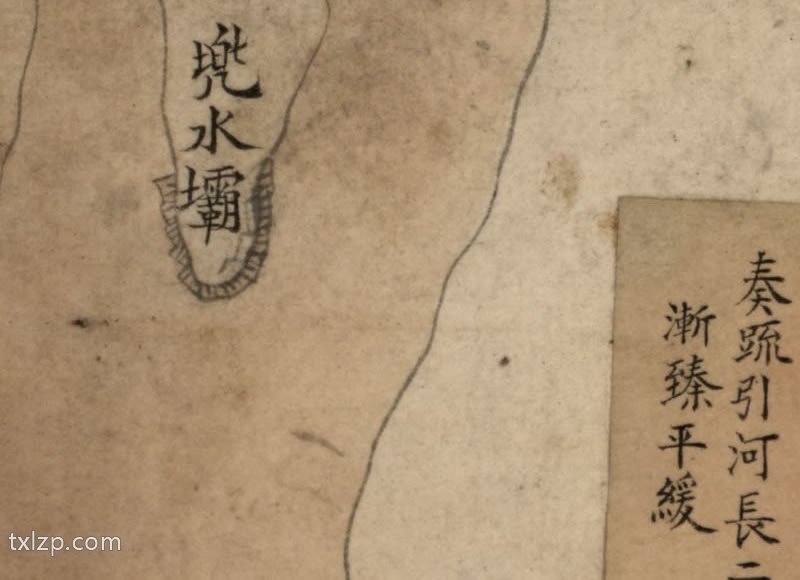 奏疏引河長二
漸臻平緩
兠水壩
txlzp.com